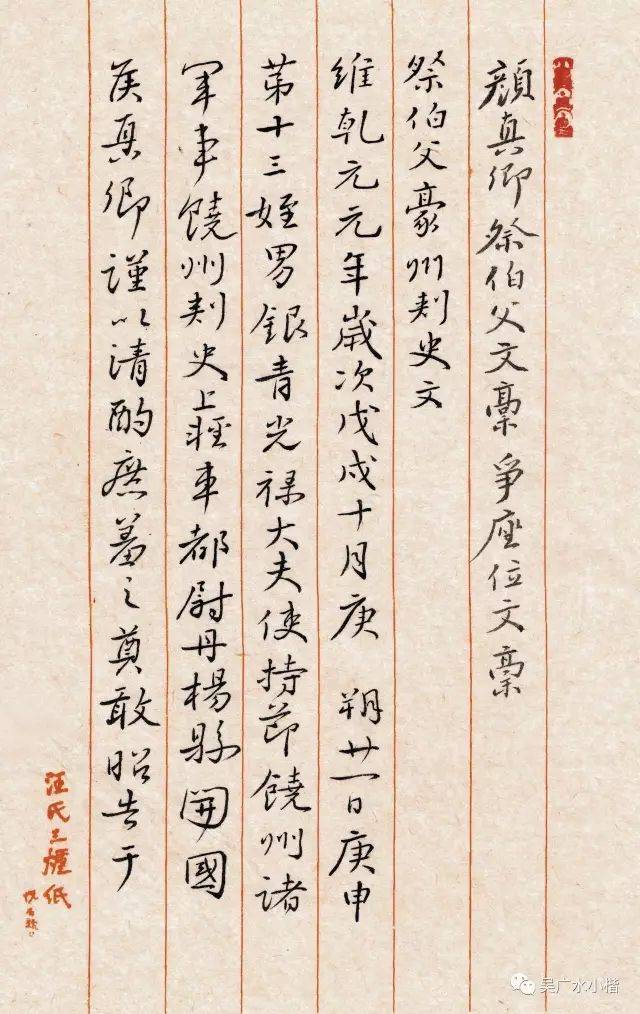 顔真卿祭伯父文稾 爭座位文稾
祭伯父豪州刾史文
維乾元元年嵗次戊戌十月庚 朔廿一日庚申
苐十三姪男銀青光禄大夫使持莭饒州諸
軍事饒州刾史上輕車都尉丹楊縣開國
侯真卿謹以清酌庶羞之奠敢昭告于
汪氏三種紙
吴广水小楷